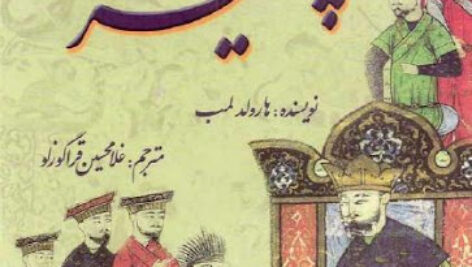 نویسنده: هارولد لمب
مترجم: غلامحسین قراگوزلو